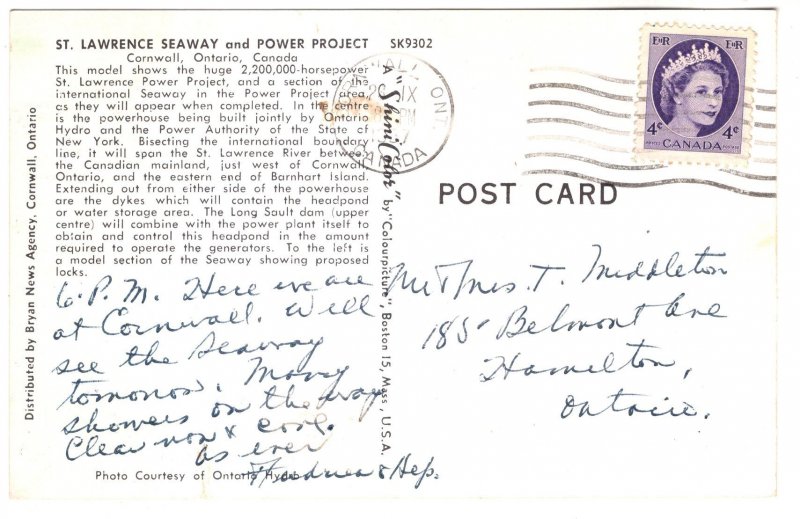 ST. LAWRENCE SEAWAY and POWER PROJECT SK9302
Cornwall, Ontario, Canada
This model shows the huge 2,200,000-horsepower
St. Lawrence Power Project, and a section of the
international Seaway in the Power Project area,
as they will appear when completed. In the centre
is the powerhouse being built jointly by Ontario
Hydro and the Power Authority of the State of
New York. Bisecting the international boundary
line, it will span the St. Lawrence River between
the Canadian mainland, just west of Cornwall,
Ontario, and the eastern end of Barnhart Island.
Extending out from either side of the powerhouse
are the dykes which will contain the headpond
or water storage area. The Long Sault dam (upper
centre) will combine with the power plant itself to
obtain and control this headpond in the amount
required to operate the generators. To the left is
a model section of the Seaway showing proposed
locks.
6. P. M. Here we are
at Cornwall. Will
see the Seaway
tomorrow. Many
showers on the way
Clear now & cool.
as ever
& Hep.
Photo Courtesy of Ontario Hydro
Distributed by Bryan News Agency, Cornwall, Ontario
A "Shini-Color" by "Colourpicture", Boston 15, Mass., U.S.A.
ONT
IX
PM
CANADA
E II R E II R
4¢ 4¢
POSTES POSTAGE
CANADA
POST CARD
Mr & Mrs. T. Middleton
185 Belmont Ave
Hamilton,
Ontario.